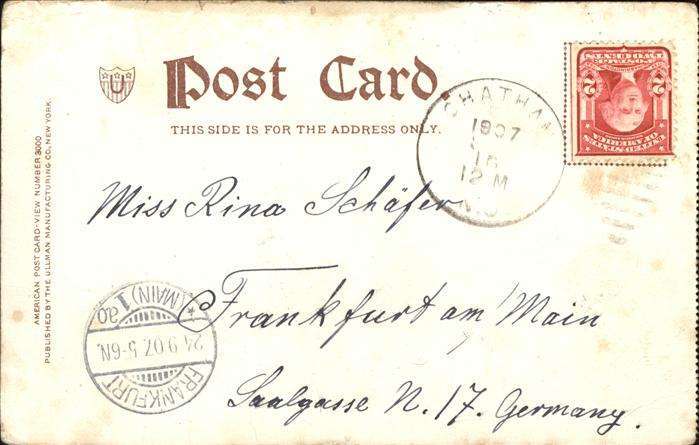 U
Post Card
THIS SIDE IS FOR THE ADDRESS ONLY.
AMERICAN POST CARD-VIEW NUMBER 3000
PUBLISHED BY THE ULLMAN MANUFACTURING CO., NEW YORK.
CHATHAM
1907
16
12 M
N.J.
2 2
UNITED STATES
OF AMERICA
Miss Rina Schäfer
Frankfurt am Main
Saalgasse N. 17. Germany.
FRANKFURT
24.9.07. 5-6N.
(MAIN) 1
ao